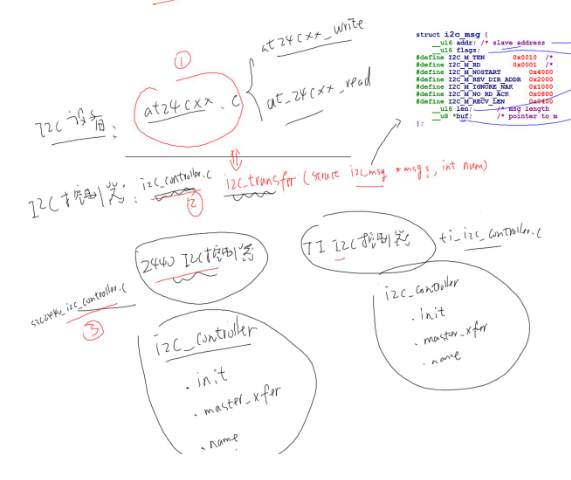 ①
at24cxx_write
at_24cxx_read
I2C设备:
at24cxx.c
struct i2c_msg {
__u16 addr; /* slave address
__u16 flags;
#define I2C_M_TEN 0x0010 /*
#define I2C_M_RD 0x0001 /*
#define I2C_M_NOSTART 0x4000
#define I2C_M_REV_DIR_ADDR 0x2000
#define I2C_M_IGNORE_NAK 0x1000
#define I2C_M_NO_RD_ACK 0x0800
#define I2C_M_RECV_LEN 0x0400
__u16 len; /* msg length
__u8 *buf; /* pointer to m
};
I2C控制器: i2c_controller.c
②
i2c_transfer (struct i2c_msg *msgs, int num)
2440 I2C控制器
TI I2C控制器
ti_i2c_controller.c
s3c2440_i2c_controller.c
③
i2c_controller
.init
.master_xfer
.name
i2c_controller
.init
.master_xfer
.name